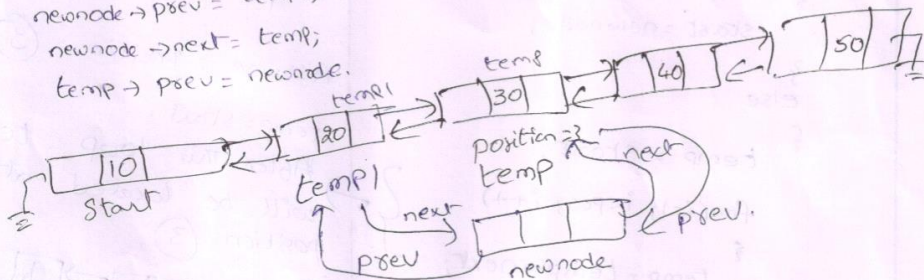 newnode → prev =
newnode → next = temp;
temp → prev = newnode.
10
Start
20
temp1
temp1
30
temp
position = 3
temp
40
50
next
prev
newnode
next
prev.